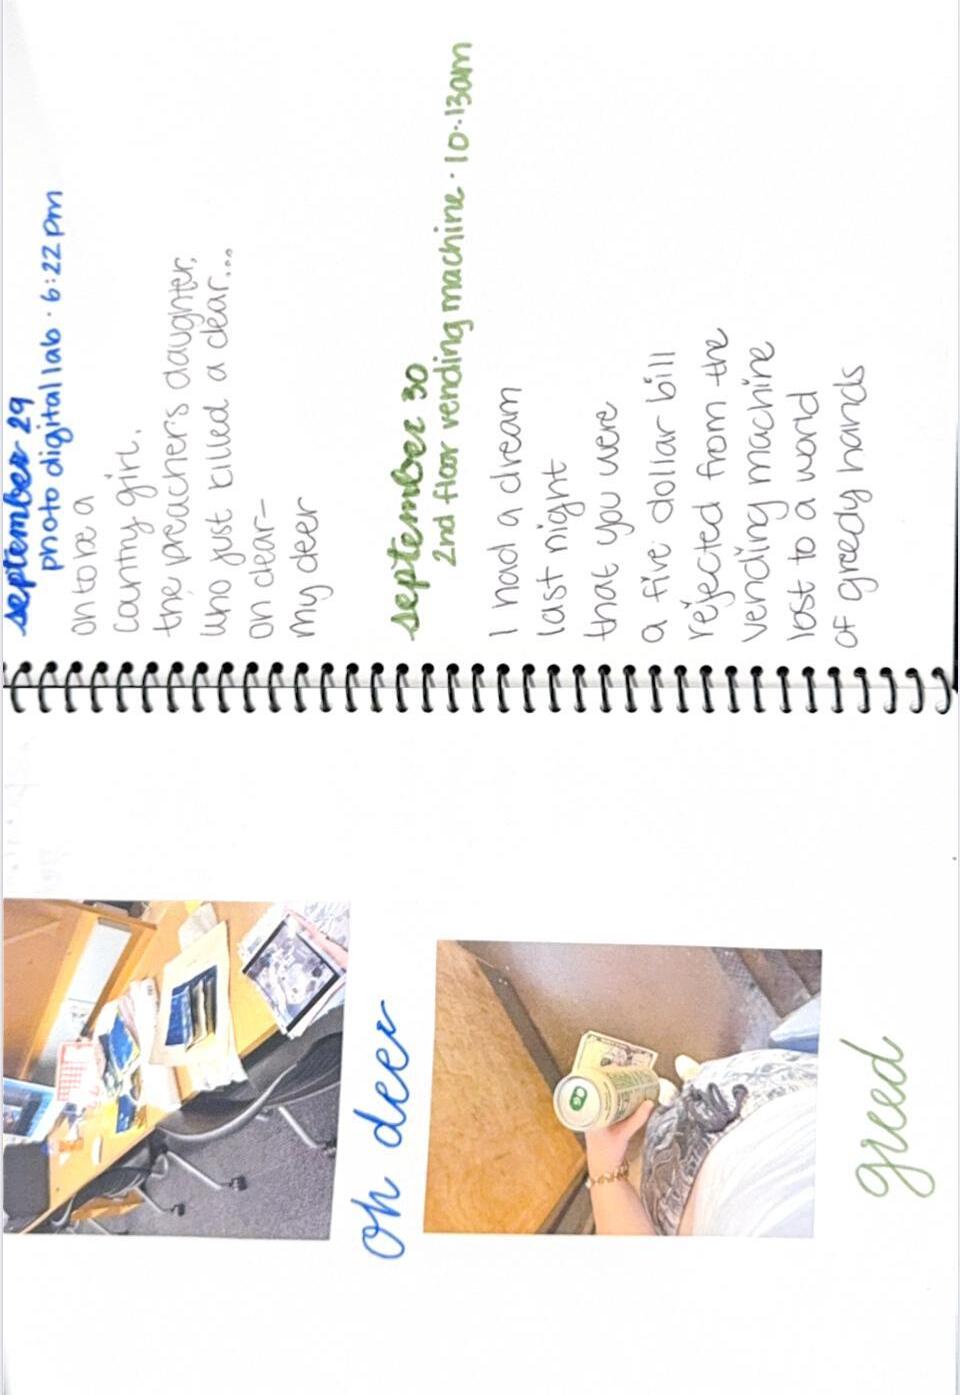 september 29
photo digital lab · 6:22 pm
oh to be a
country girl.
the preachers daughter,
who just killed a dear...
oh dear-
my deer
september 30
2nd floor vending machine · 10:13am
I had a dream
last night
that you were
a five dollar bill
rejected from the
vending machine
lost to a world
of greedy hands
oh deer
greed